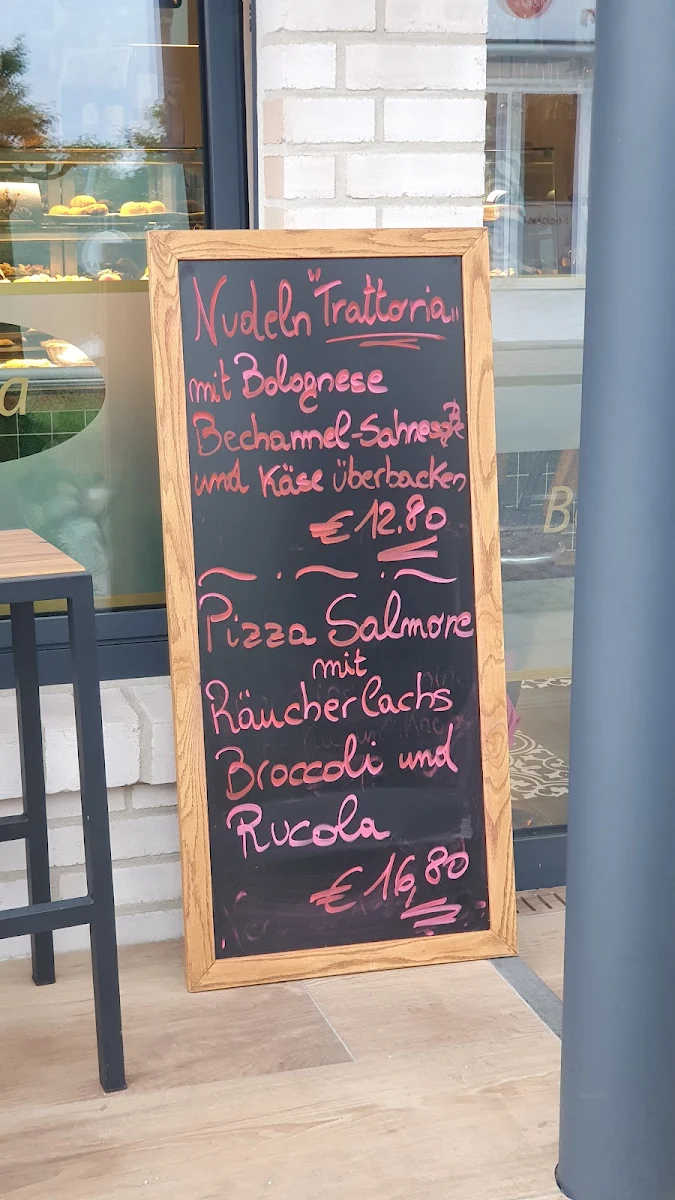 Nudeln "Trattoria"
mit Bolognese
Bechammel-Sahnesoße
und Käse überbacken
€ 12.80
Pizza Salmore
mit
Räucherlachs
Broccoli und
Rucola
€ 16,80